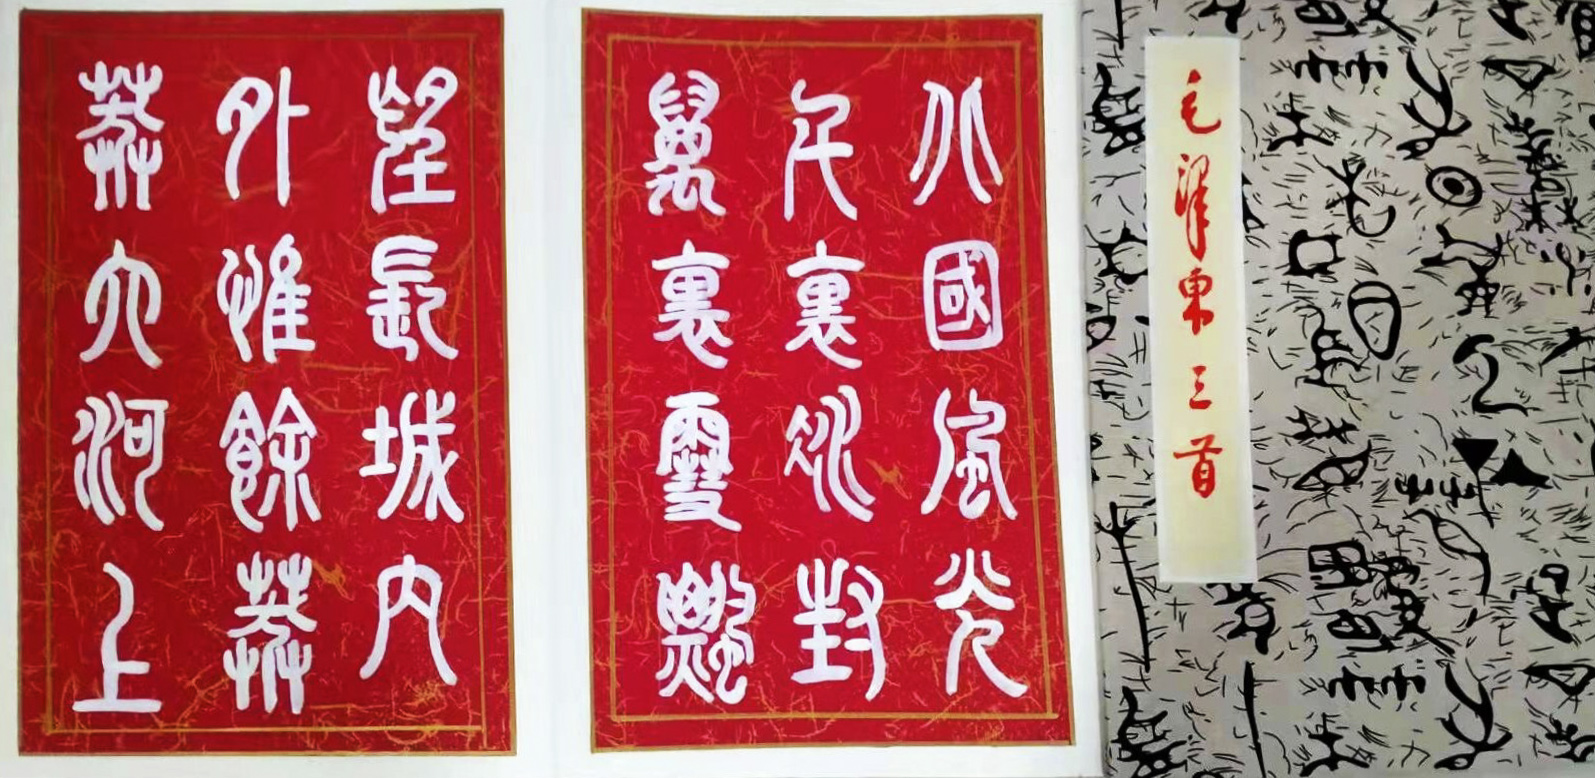 毛澤東三首
北國風光
千裏冰封
萬裏雪飄
望長城內
外惟餘莽
莽大河上